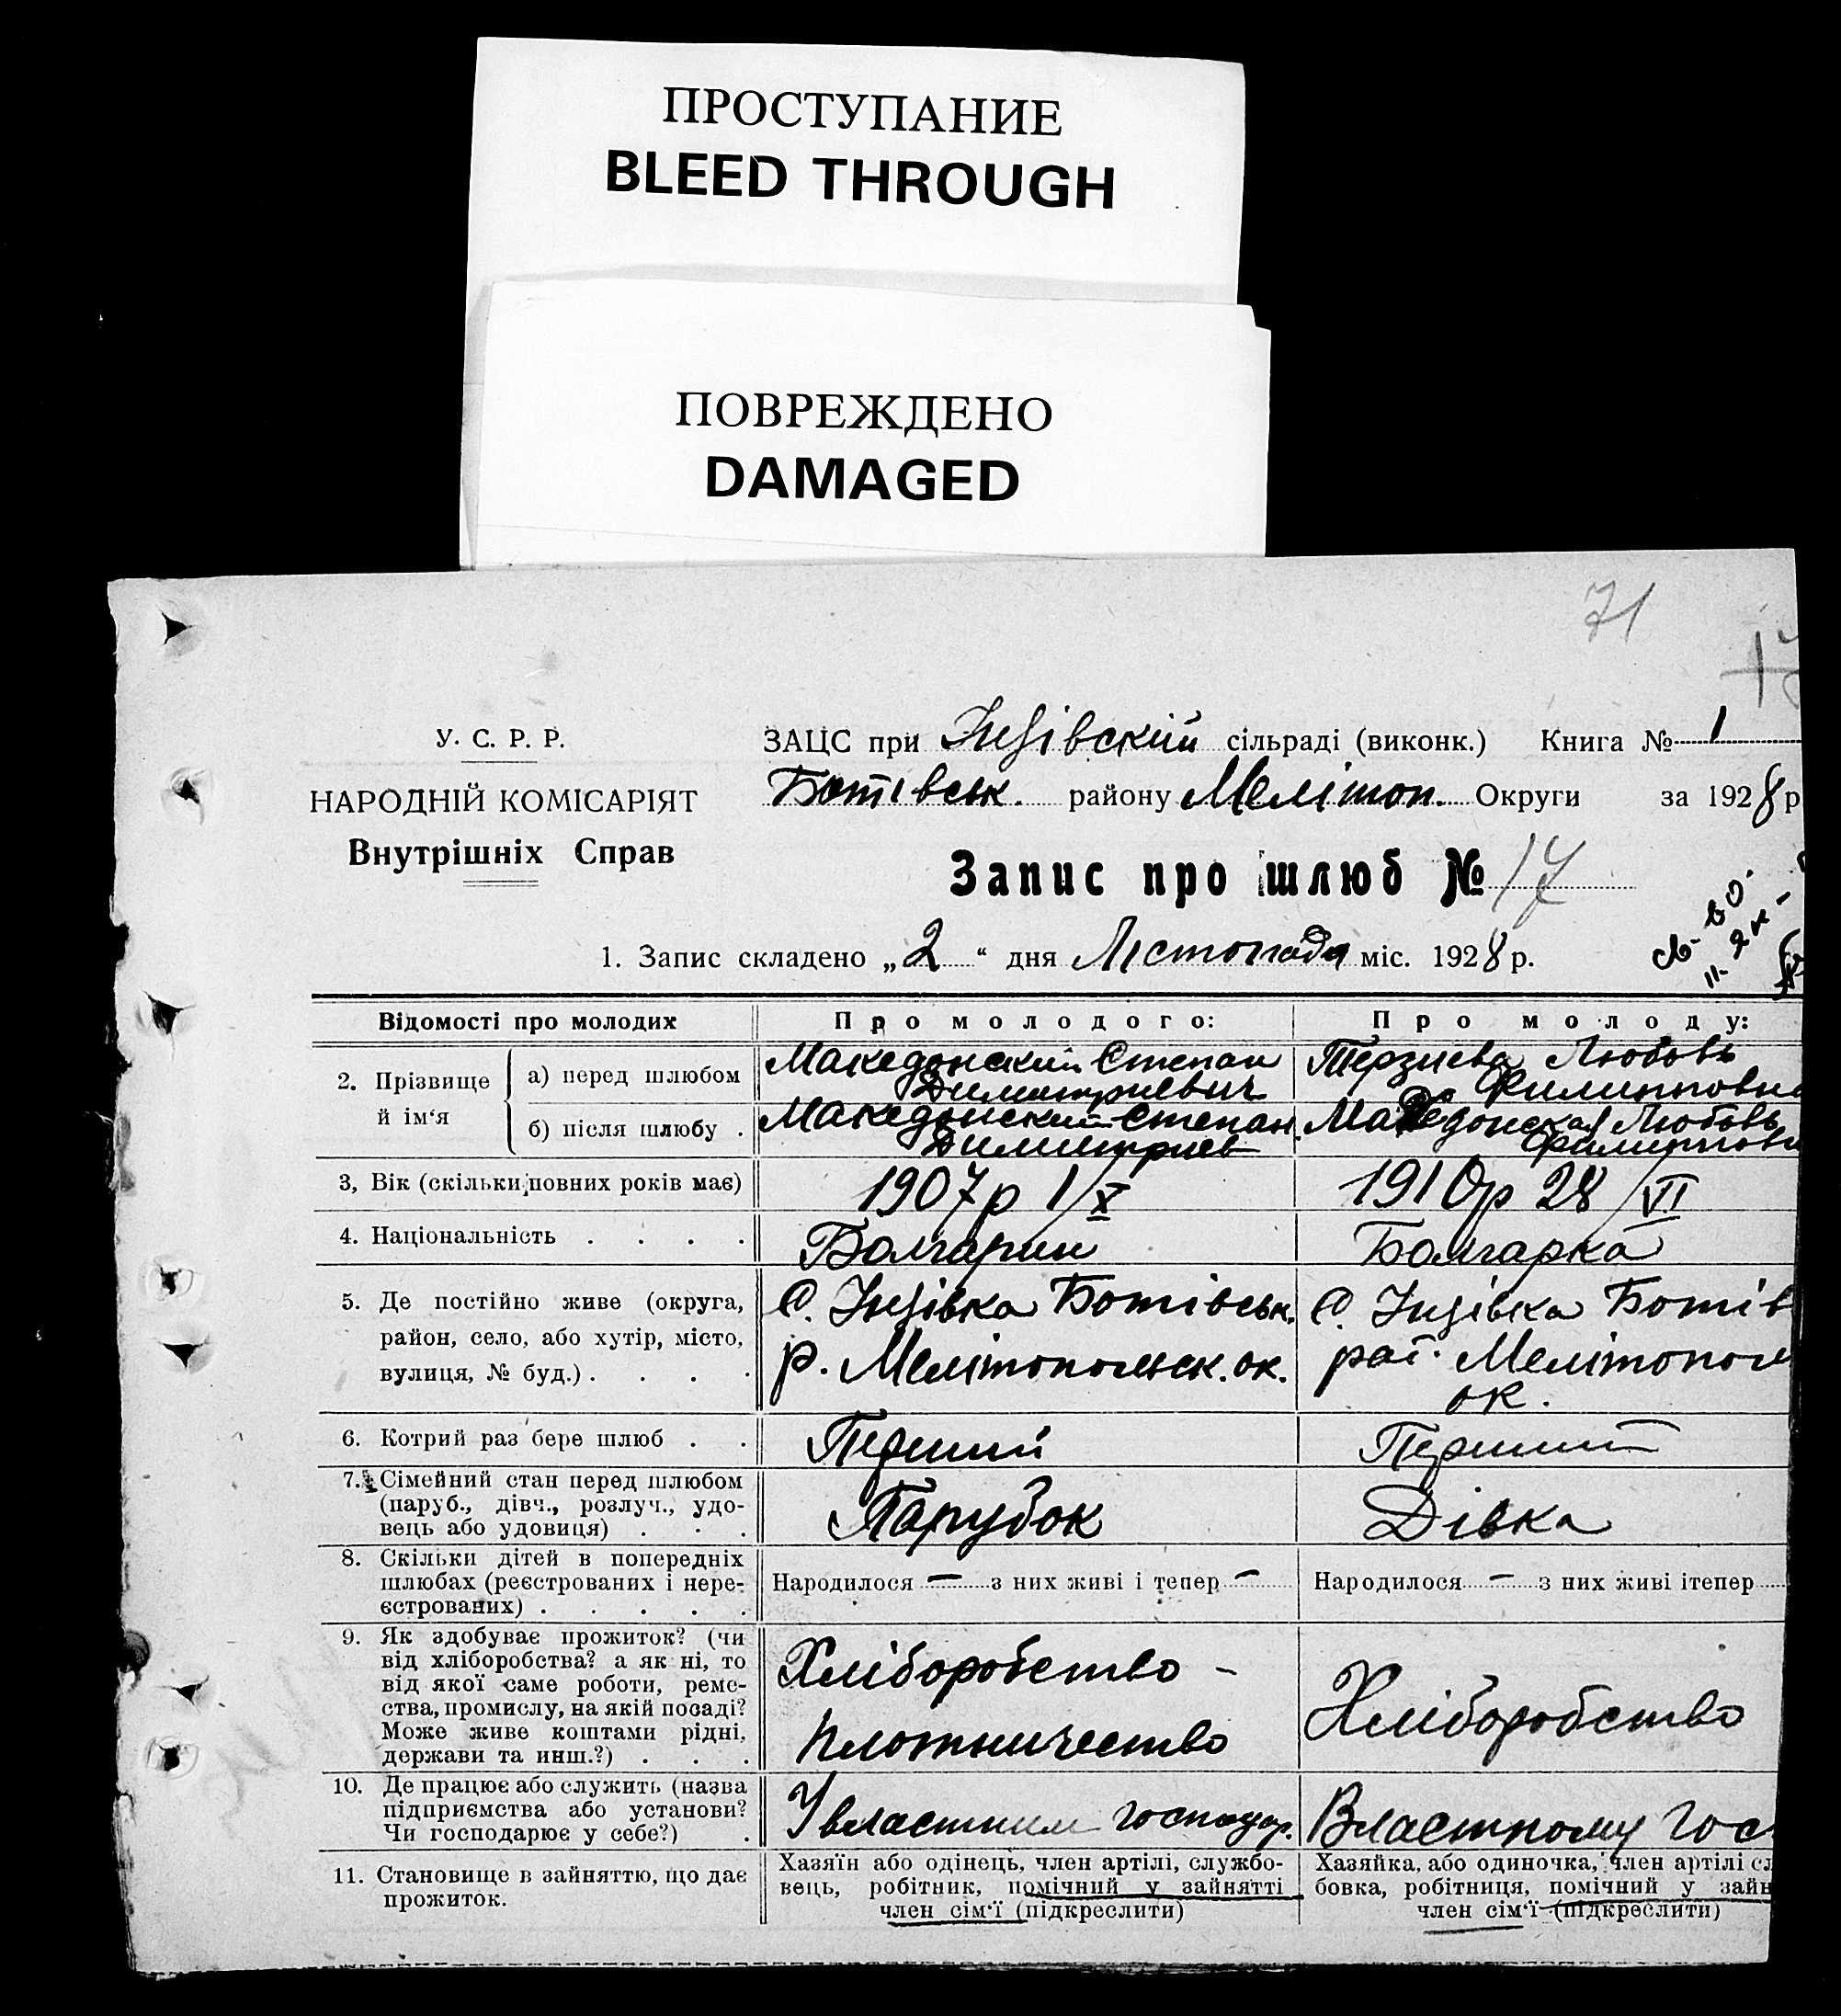 ПРОСТУПАНИЕ
BLEED THROUGH
ПОВРЕЖДЕНО
DAMAGED
71
У. С. Р. Р.
НАРОДНІЙ КОМІСАРІЯТ
Внутрішніх Справ
ЗАЦС при Інзівский сільраді (виконк.) Книга № 1
Ботівськ. району Мелітоп. Округи за 1928 р
Запис про шлюб № 17
1. Запис складено „2“ дня Лістопада міс. 1928 р.
Відомості про молодих Про молодого: Про молоду:
2. Прізвище й ім‘я
а) перед шлюбом Македонский Степан Димитриевич Терзиева Любовь Филипповна
б) після шлюбу . Македонский Степан. Димитриев Македонская Любовь Филиппови
3, Вік (скільки повних років має) 1907р 1/X 1910р 28/VI
4. Національність . . . . Болгарин Болгарка
5. Де постійно живе (округа, район, село, або хутір, місто, вулиця, № буд.) . . . .
С. Інзівка Ботівськ.
р. Мелітопольск. ок.
С. Інзівка Ботів
рай. Мелітопол
ок.
6. Котрий раз бере шлюб . . Перший Перший
7. Сімейний стан перед шлюбом
(паруб., дівч., розлуч., удо-
вець або удовиця) . . . Парубок Дівка
8. Скільки дітей в попередніх
шлюбах (реєстрованих і нере-
єстрованих) . . . . .
Народилося — з них живі і тепер — Народилося — з них живі ітепер
9. Як здобуває прожиток? (чи
від хліборобства? а як ні, то
від якої саме роботи, реме-
ства, промислу, на якій посаді?
Може живе коштами рідні,
держави та инш.?) . . .
Хліборобство -
плотничество
Хліборобство
10. Де працює або служить (назва
підприємства або установи?
Чи господарює у себе?) .
У властним господар. Властному гос
11. Становище в зайняттю, що дає
прожиток.
Хазяїн або одінець, член артілі, службо-
вець, робітник, помічний у зайнятті
член сім‘ї (підкреслити)
Хазяйка, або одиночка, член артілі сл
бовка, робітниця, помічний у зайн
член сім‘ї (підкреслити)